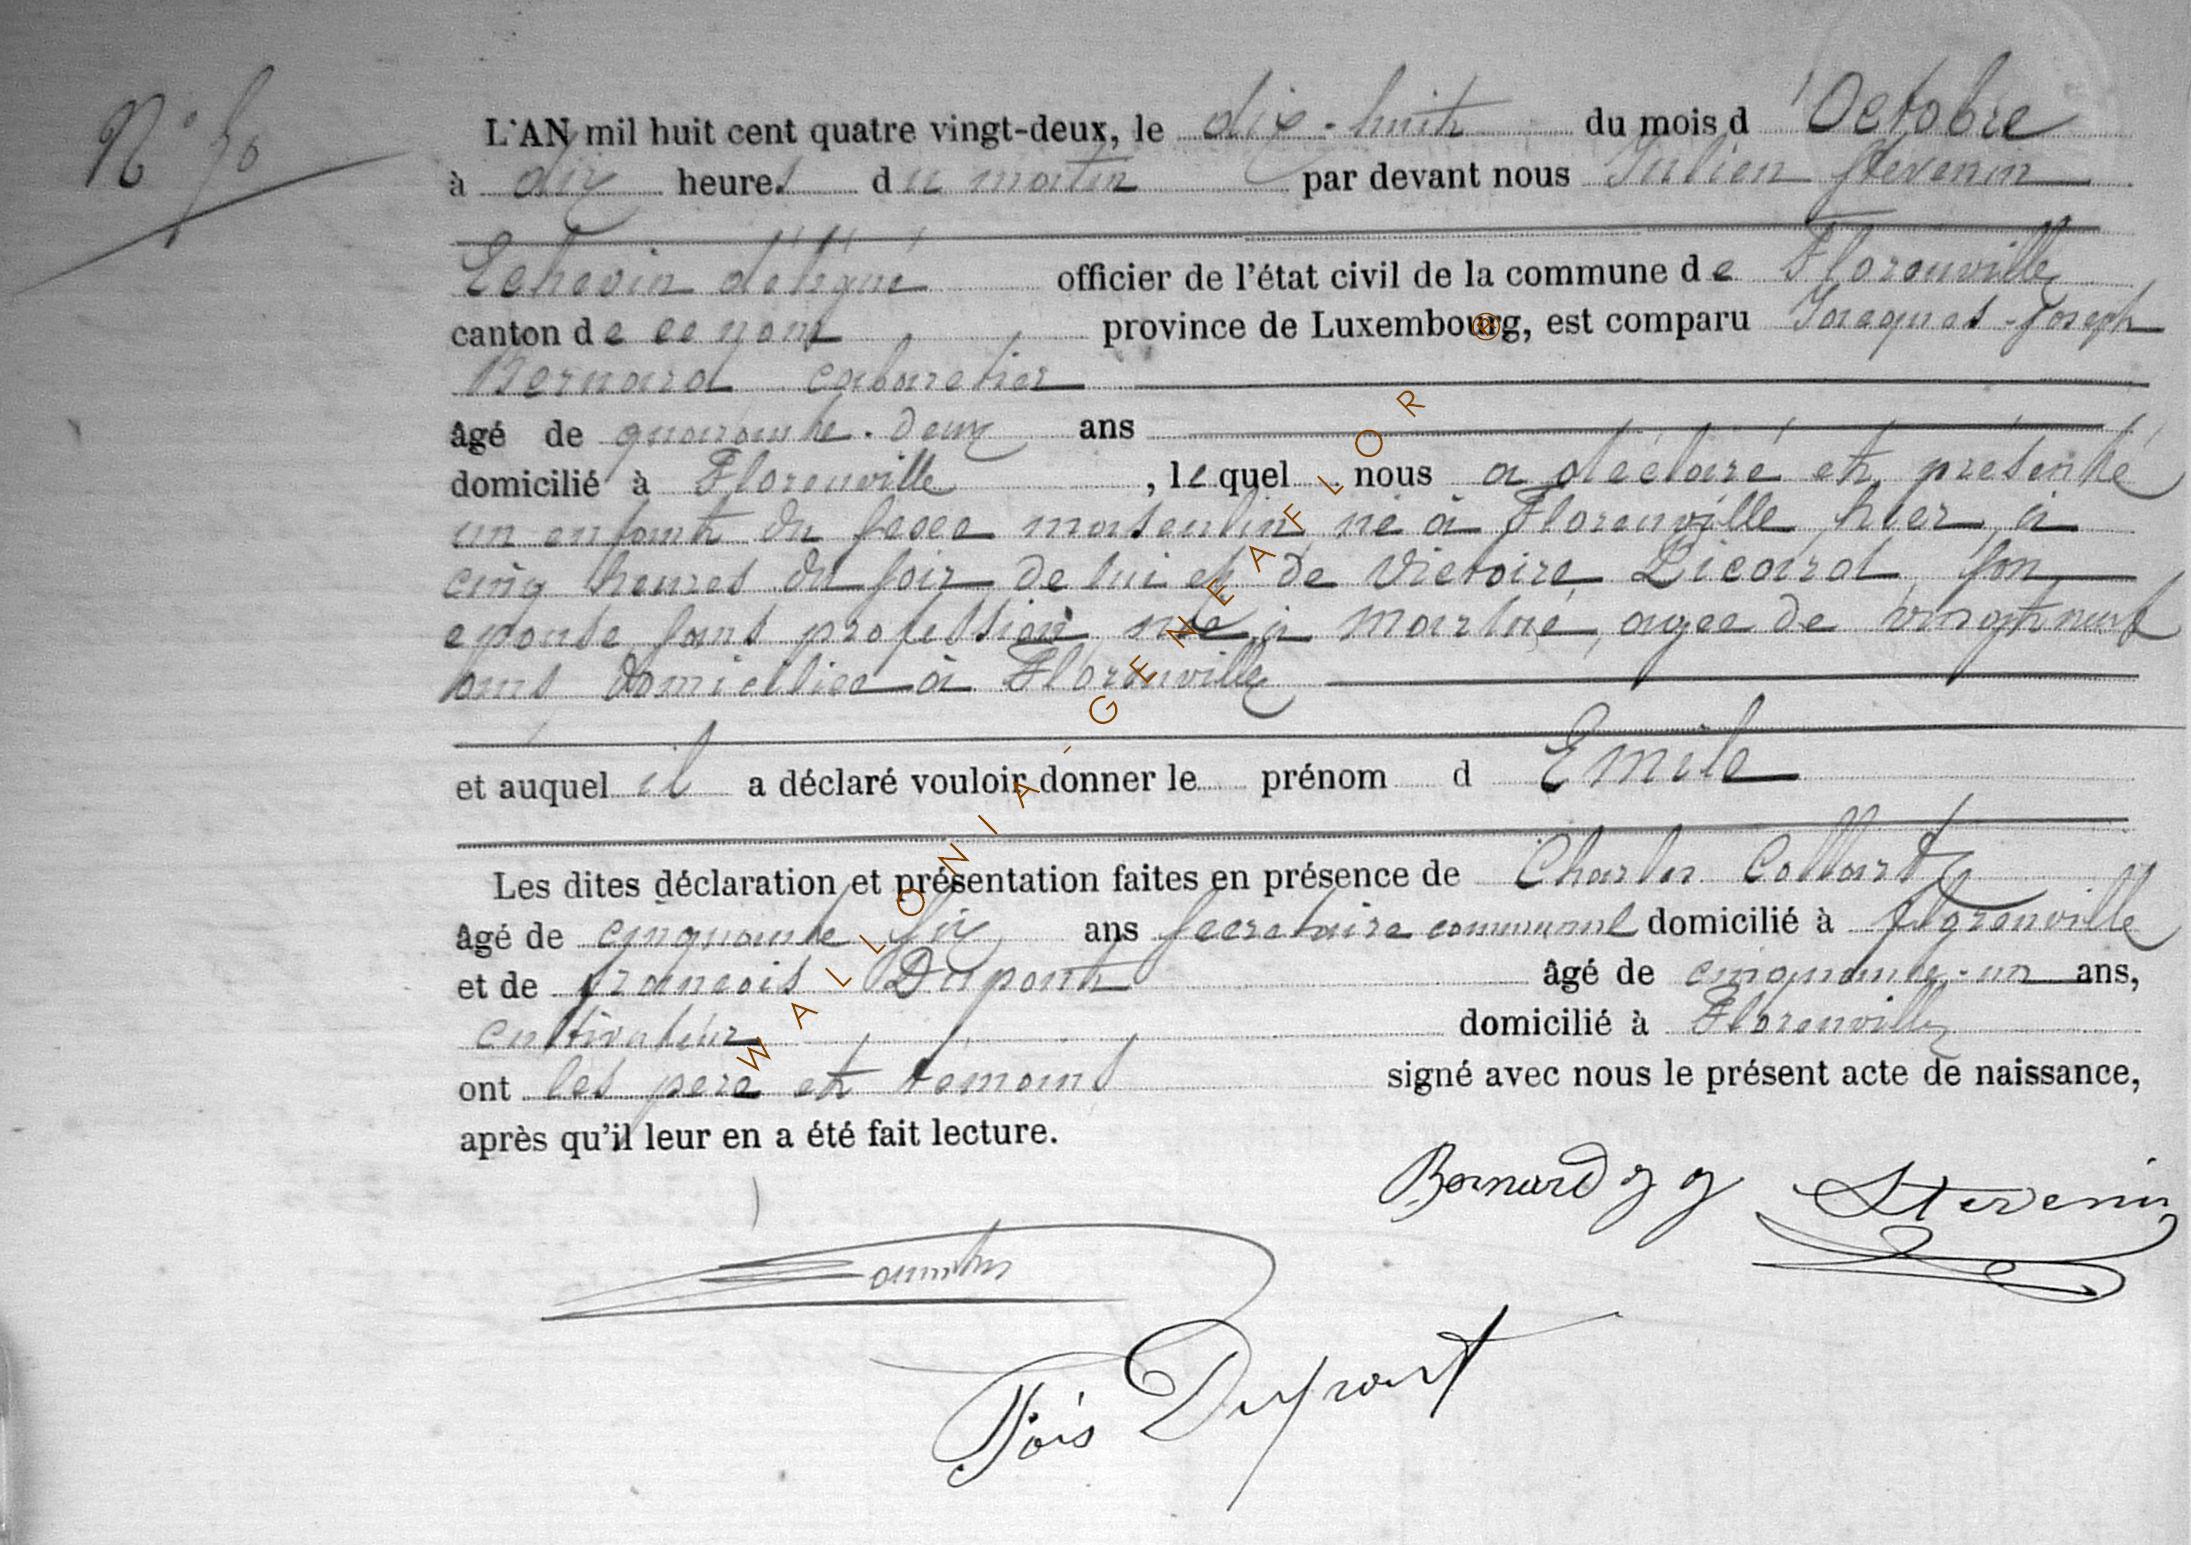 N° 50
L'AN mil huit cent quatre vingt-deux, le dix-huit du mois d'Octobre
à dix heures du matin par devant nous Julien Stevenin
Echevin délégué officier de l'état civil de la commune de Florenville
canton de ce nom province de Luxembourg, est comparu Jacques-Joseph
Bernard cabaretier
âgé de quarante-deux ans
domicilié à Florenville, lequel nous a déclaré et présenté
un enfant du sexe masculin né à Florenville hier à
cinq heures du soir de lui et de Victoire Picard son
epouse sans profession née à Martué, agee de vingt neuf
ans domiciliee à Florenville
et auquel il a déclaré vouloir donner le prénom d Emile
Les dites déclaration et présentation faites en présence de Charles Collard
âgé de cinquante six ans secretaire communal domicilié à Florenville
et de françois Dupont âgé de cinquante-un ans,
cultivateur domicilié à Florenville
ont les pere et témoins signé avec nous le présent acte de naissance,
après qu'il leur en a été fait lecture.
Bernard J J Stevenin
Fois Dupont
WALLONIA-GENEAFLOR ®